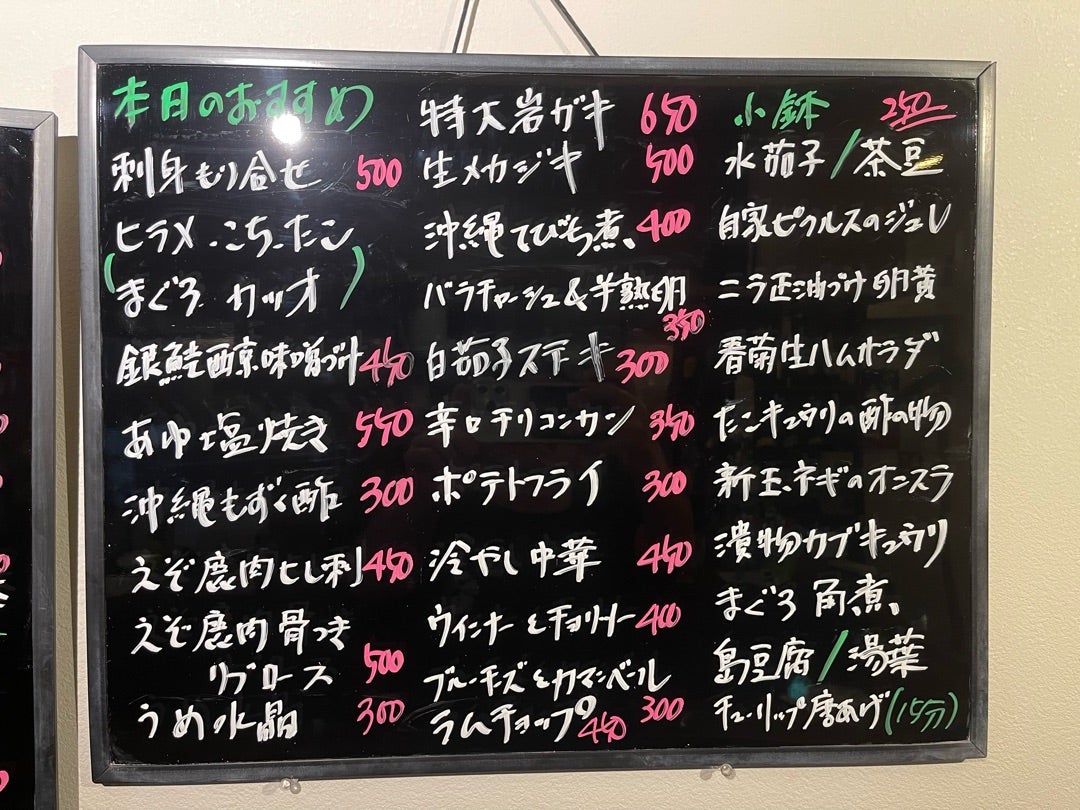 本日のおすすめ
刺身もり合せ 500
ヒラメ.こち.たこ
(まぐろ カツオ)
銀鮭西京味噌づけ 450
あゆ塩焼き 550
沖縄もずく酢 300
えぞ鹿肉ヒレ刺 450
えぞ鹿肉骨つき
リブロース 500
うめ水晶 300
特大岩ガキ 650
生メカジキ 500
沖縄てびち煮、400
バラチャーシュ&半熟卵
350
白茄子ステキ 300
辛口チリコンカン 350
ポテトフライ 300
冷やし中華 450
ウインナーとチョリソー 400
ブルーチーズとカマンベール
300
ラムチョップ 450
小鉢 250
水茄子/茶豆
自家ピクルスのジュレ
ニラ正油づけ卵黄
春菊生ハムサラダ
たこキュウリの酢の物
新玉ネギのオニスラ
漬物カブキュウリ
まぐろ角煮、
島豆腐/湯葉
チューリップ唐あげ(15分)